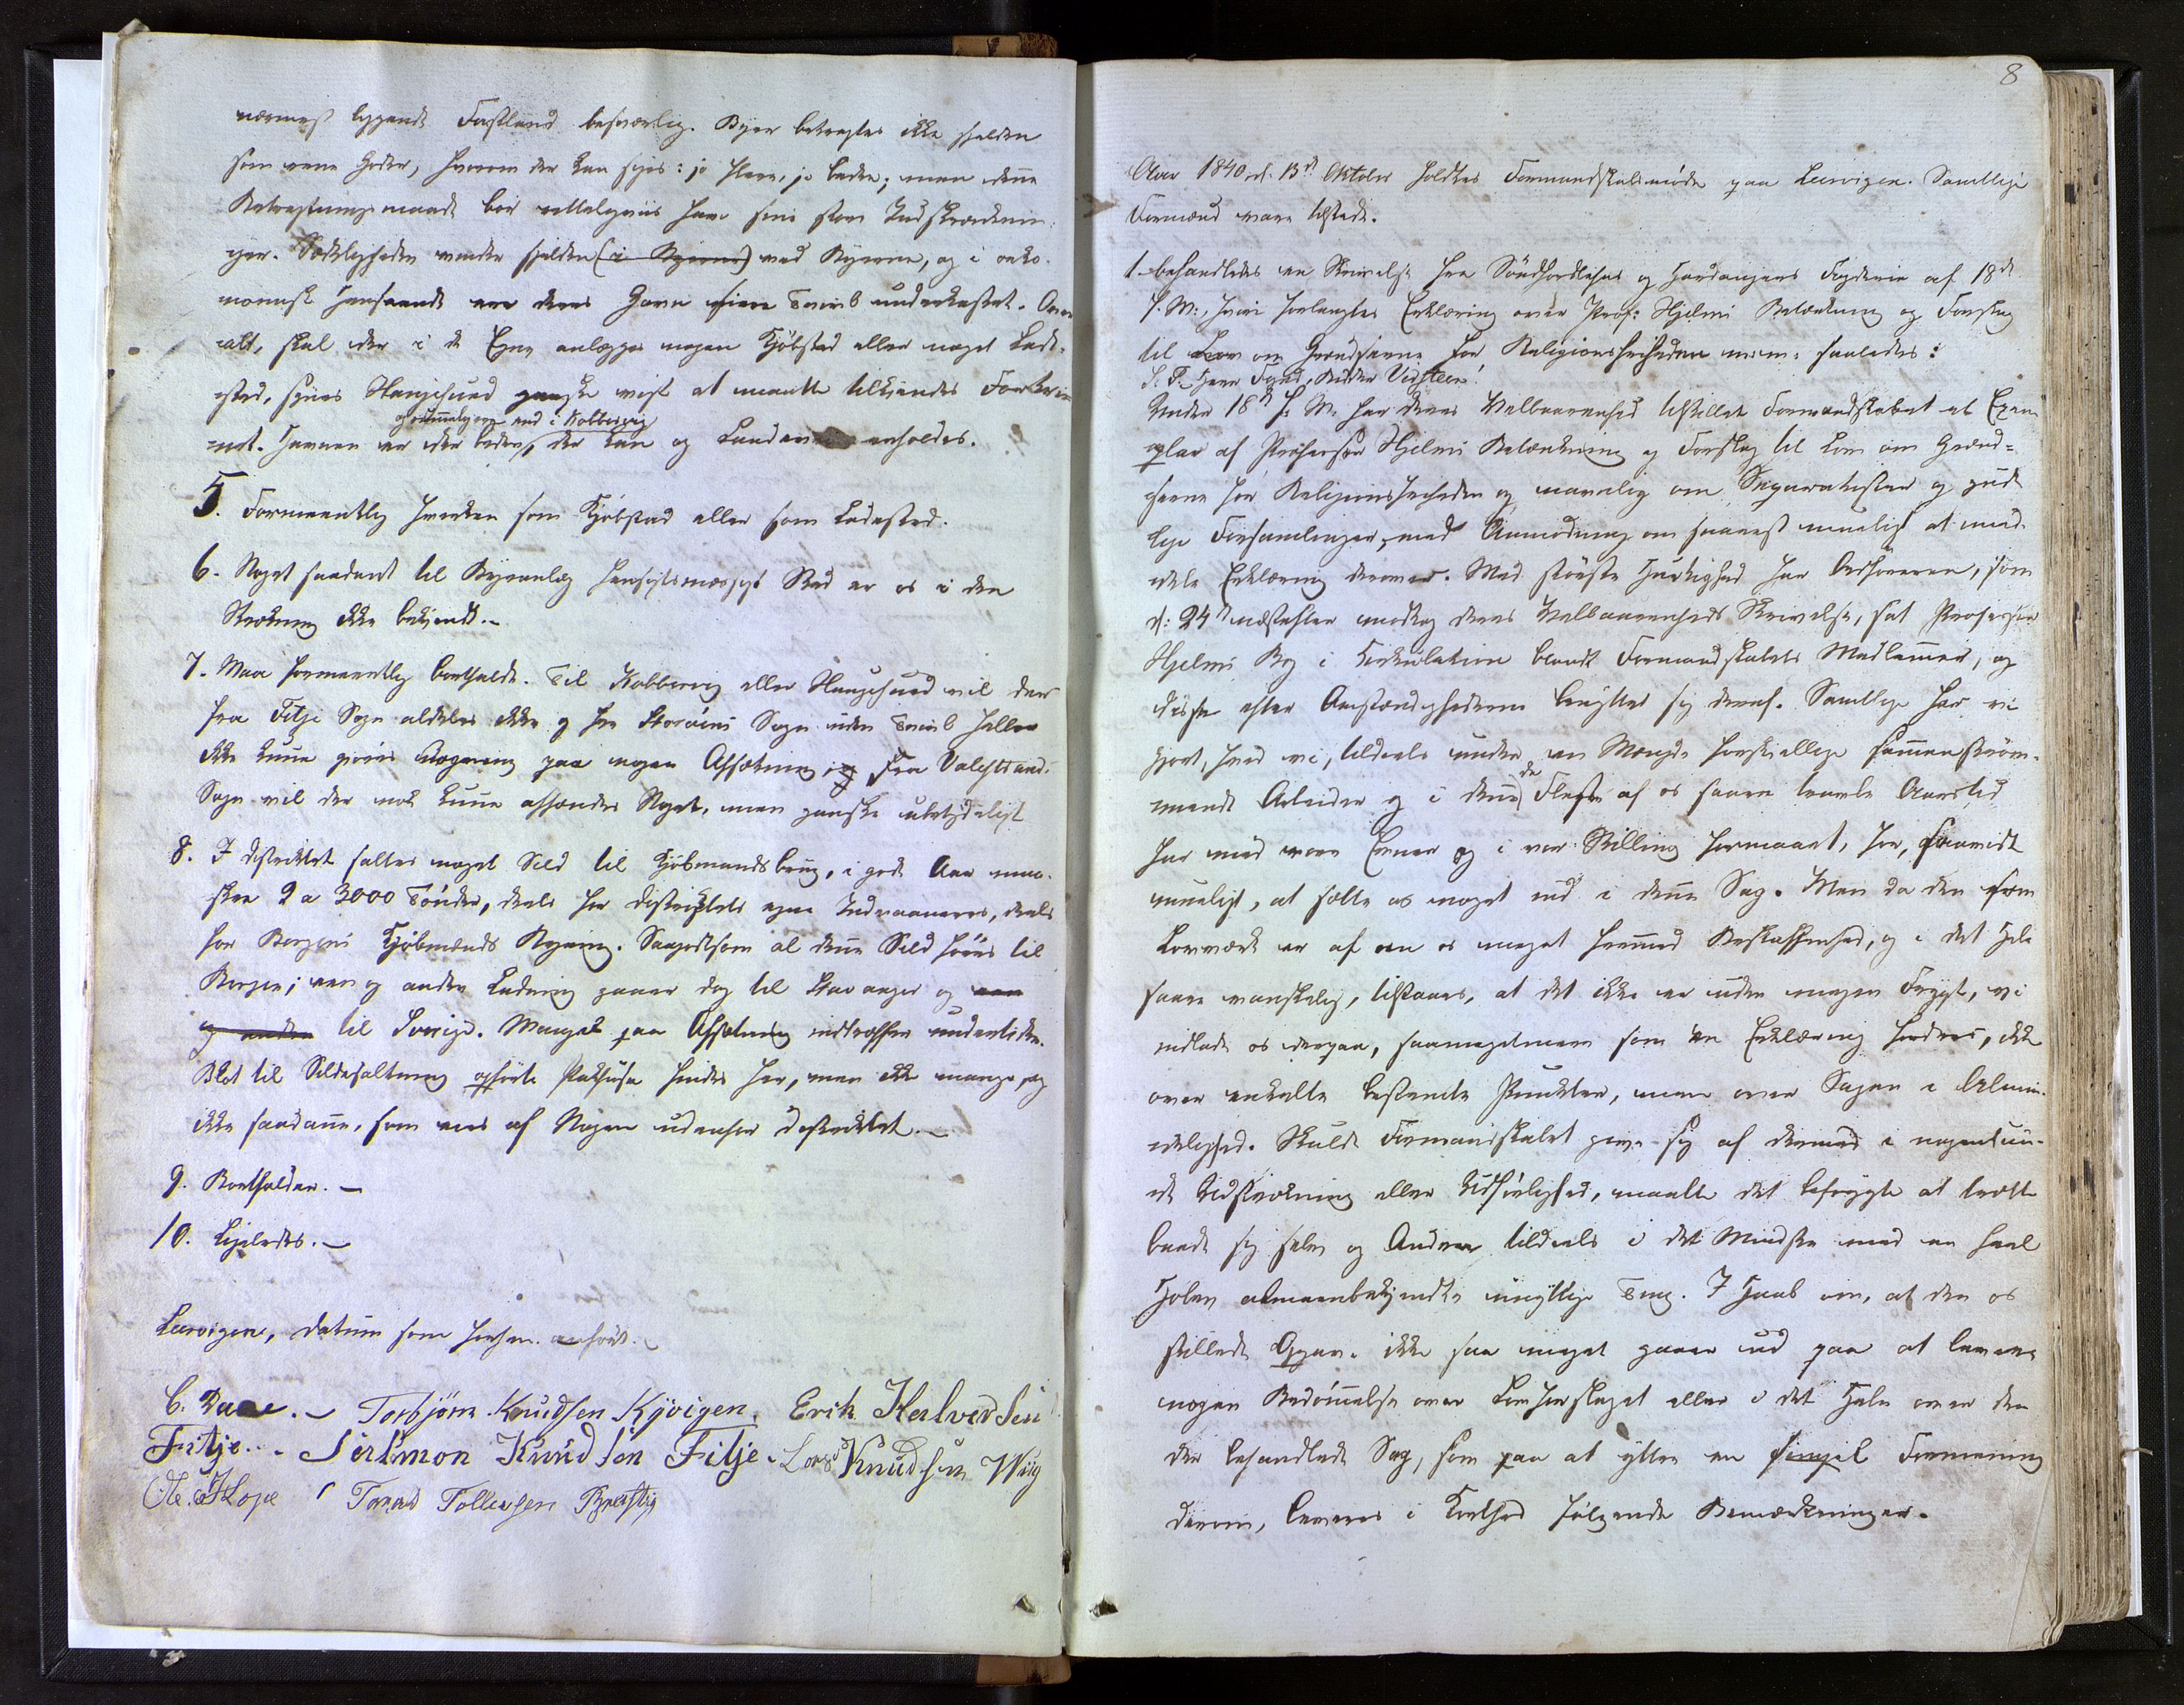 nærmest liggende Fastland besværlig. Byer betragtes ikke sjelden
som rene Goder, hvorom der kan siges: jo flere, jo bedre; men denne
Betragtningsmaade bør rettelig have sine store Indskrænknin-
ger. Sædeligheden vinder sjelden (i Byerne) ved Byerne, og i øko-
nomisk Henseende ere deres Gavn Tvivl underkastet. Over-
alt, skal der i de Egne anlægges nogen Kjøbstad eller noget Lade-
sted, synes Haugesund ganske vist at maatte tilkiendes Fortrin
og rummeligere end i Kobbervig
net. Havnen er der bedre, der kan og Landeveie anholdes.
5. Formeentlig hverken som Kjøbstad eller som Ladested.
6. Noget saadant til Byeanlæg hensigtsmæssigt Sted er os i den
Strækning ikke bekjendt.-
7. Maa formeentlig bortfalde. Til Kobbervig eller Haugesund vil der
fra Fitje Sogn aldeles ikke og fra Storøens Sogn uden Tvivl heller
ikke kunne gjøres Regning paa nogen Afsætning, og fra Valestrand
Sogn vil der nok kunne afsændes Noget, men ganske ubetydeligt
8. I Distriktet saltes noget Sild til Kjøbmandsbrug, i gode Aar maa-
skee 2 a 3000 Tønder, deels for Distriktets egne Indvaaneres, deels
for Bergens Kjøbmænds Regning. Saagodtsom al denne Sild føres til
Bergen; een og anden Ladning gaaer dog til Stavanger og een
og anden til Sverige. Mangel paa Afsætning indtræffer undertiden.
Blot til Sildesaltning opførte Pakhuse findes her, men ikke mange, og
ikke saadanne, som eies af Nogen udenfor Distriktet.-
9. Bortfalder.-
10. Ligeledes.-
Leervigen, Datum som forhen anført.
C. Daae.- Torbjørn Knudsen Kyvigen, Erik Halvorsen
Fitje.- Salamon Knudsen Fitje. Lars Knudsen Wiig
Ole Hope Tollevsen
8
Aar 1840 d. 13de Oktober holdtes Formandskabsmøde paa Leervigen. Samtlige
Formænd vare tilstede.
1. behandledes en Skrivelse fra Söndhordlehns og Hardangers Fogderie af 18de
f. M., hvori forlangtes Erklæring over Prof: Hjelms Betænkning og Forslag
til Lov om Grændserne for Religionsfriheden m:m: saaledes:
S. T. Herr Foged, Ridder Vidsteen!
Under 18de f. M. har Deres Velbaarenhed tilstillet Formandskabet et Exem-
plar af Professor Hjelms Betænkning og Forslag til Lov om Grænd-
serne for Religionsfriheden og navnlig om Separatister og gude-
lige Forsamlinger, med Anmodning om snarest mueligt at med-
dele Erklæring derover. Med største Hurtighed har Ordføreren, som
d: 24de næstefter modtog Deres Velbaarenheds Skrivelse, sat Professor
Hjelms Bog i Cirkulation blandt Formandskabets Medlemmer, og
disse efter Omstændighederne benyttet sig deraf. Samtlige har vi
gjort, hvad vi, tildeels under en Mængde forskiellige sammenstrøm-
mende Arbeider og i denne de Fleste af os saare travle Aarstid
har med vore Evner og i vor Stilling formaaet, for, saavidt
mueligt, at sætte os noget ind i denne Sag. Men da den som
Lovværk er af en os meget fremmed Beskaffenhed, og i det Hele
saare vanskelig, tilstaaes, at det ikke er uden nogen Frygt, vi
indlade os derpaa, saameget mere som en Erklæring fordres, ikke
over enkelte bestemte Punkter, men over Sagen i Almin-
delighed. Skulde Formandskabet give sig af dermed i nogenlun-
de Udstrækning eller Udførlighed, maatte det befrygte at trætte
baade sig selv og Andre tildeels i det Mindste med en heel
Hoben almeenbekjendte unyttige Ting. I Haab om, at den os
stillede Opgave ikke saa meget gaaer ud paa at levere
nogen Bedømmelse over Lovforslaget eller i det Hele over den
der behandlede Sag, som paa at yttre en simpel Formening
derom, leveres i Korthed følgende Bemærkninger.